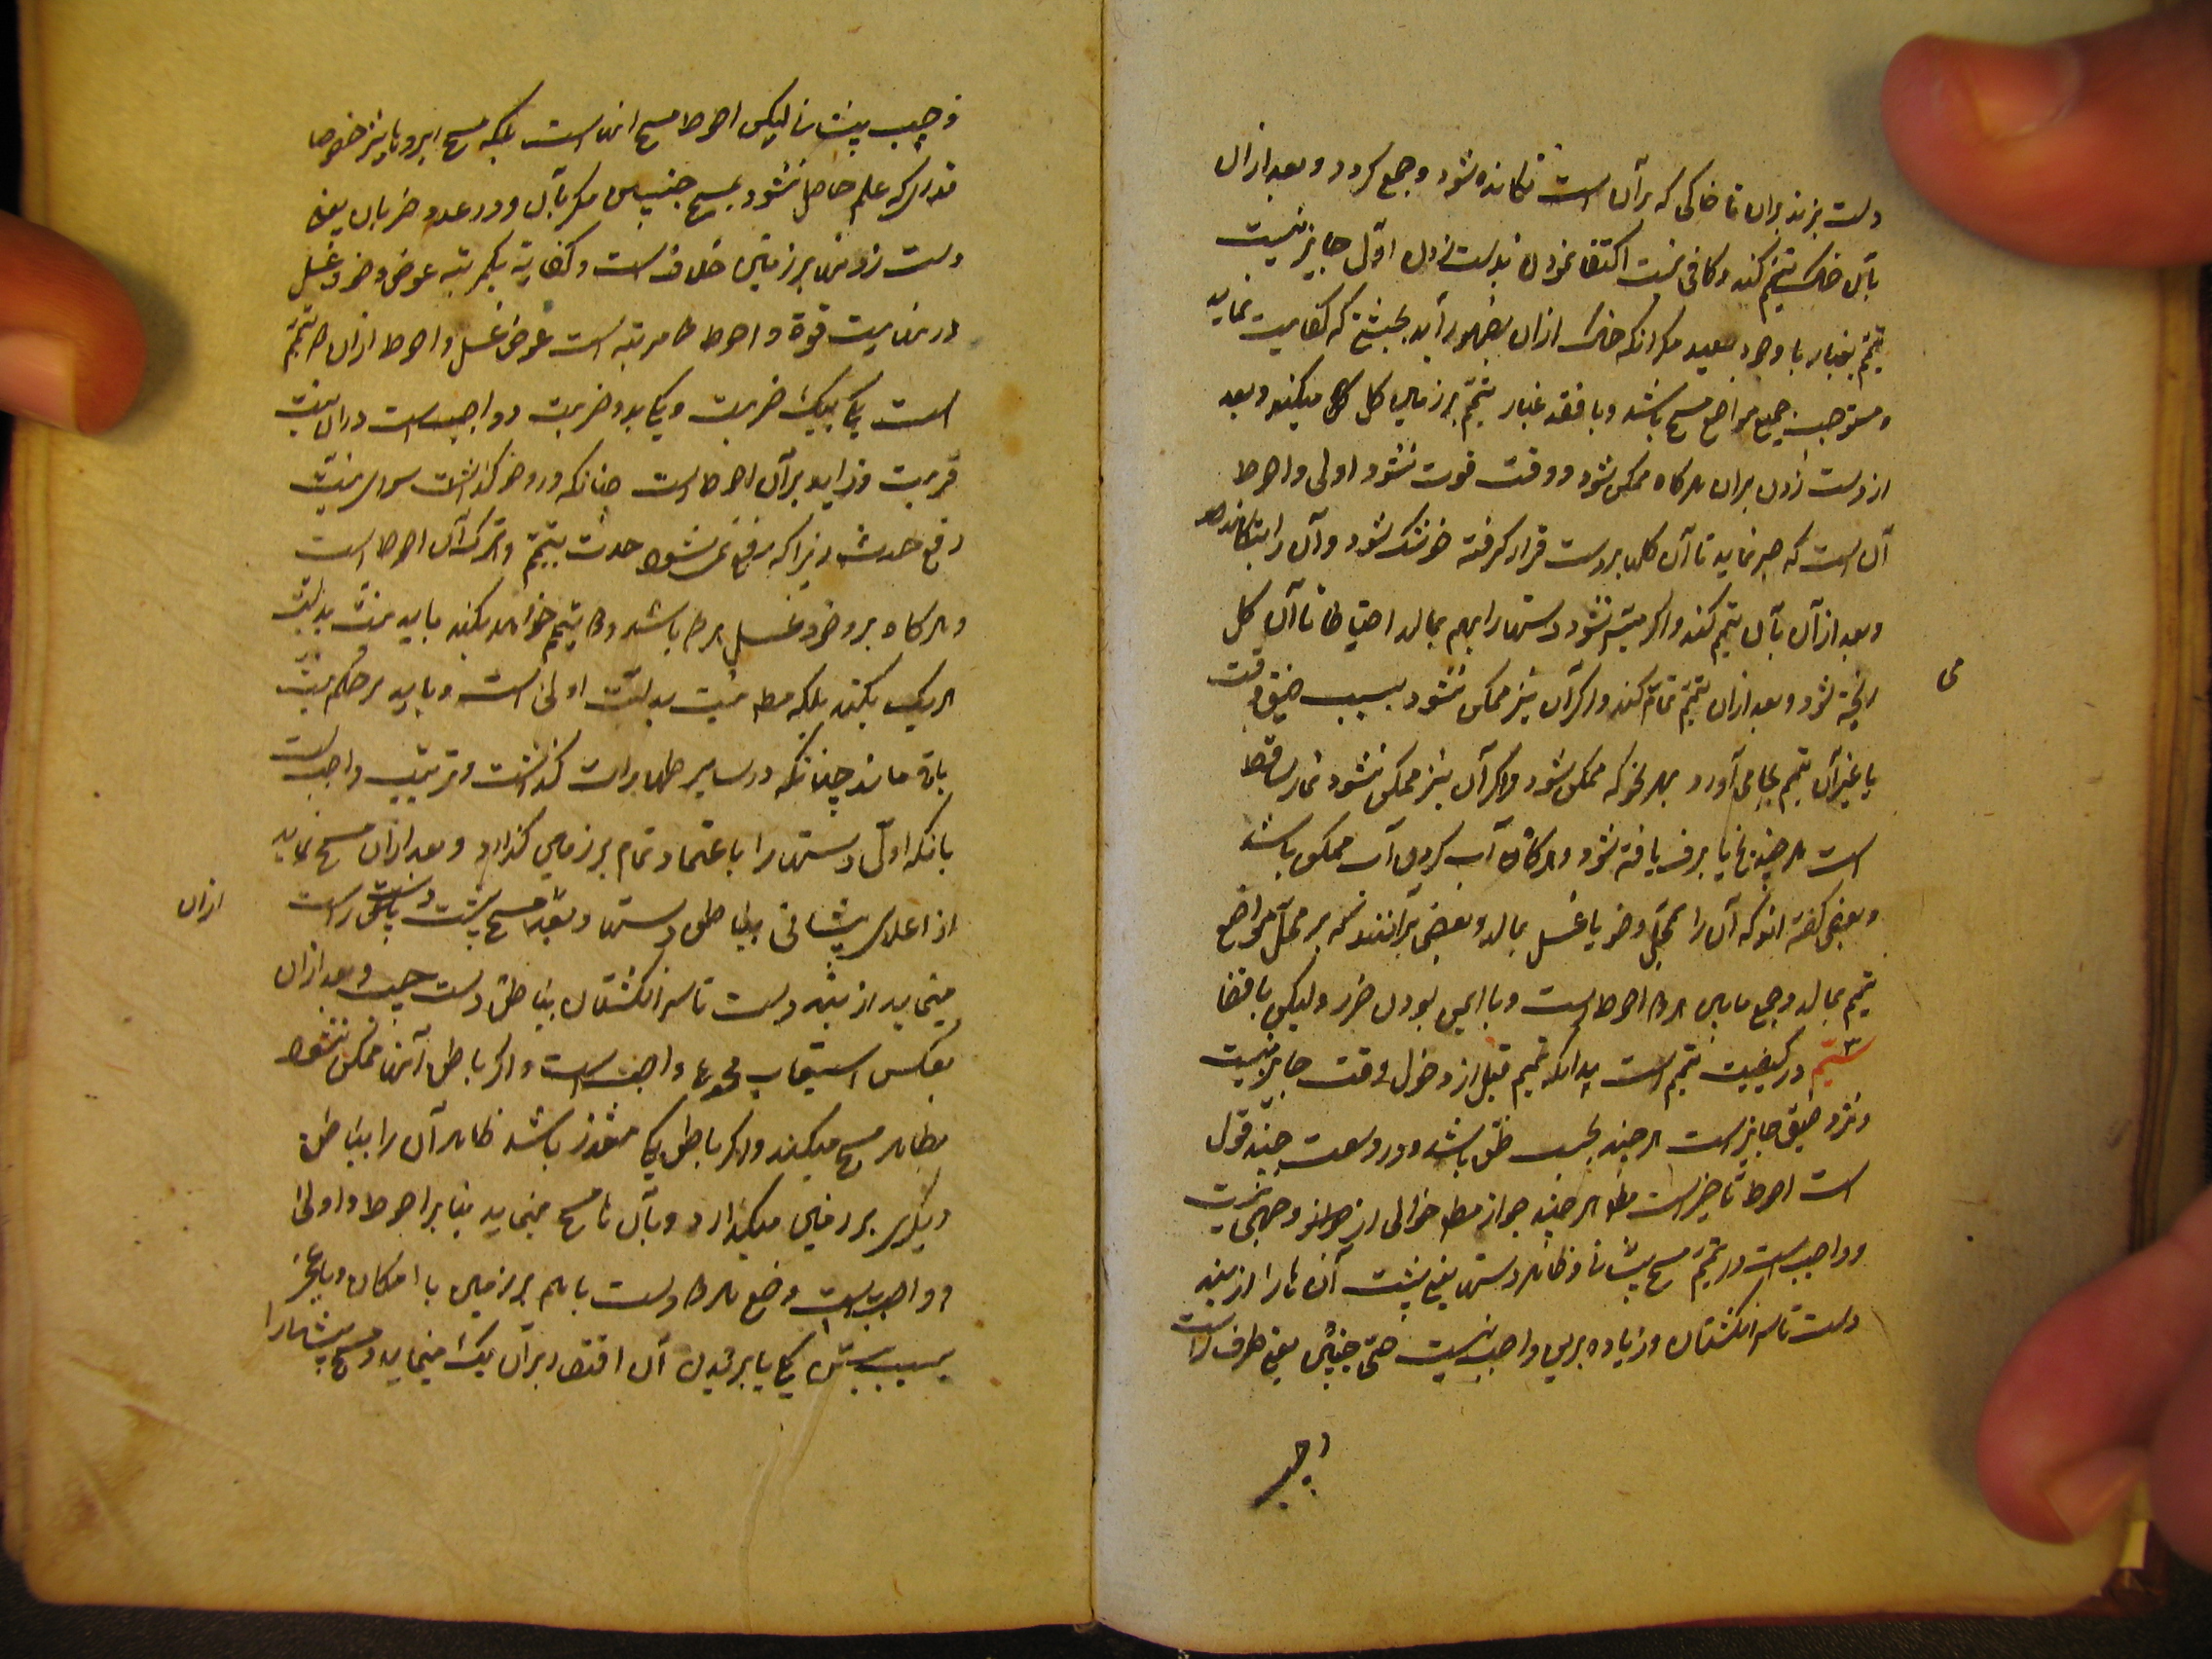 دست بزند بران تا خاکی که بر آن است تکانده شود و جمع کردد و بعد ازان
بآن خاک تیمّم کند و کافی نیست اکتفا نمودن بدست زدن اوّل جایز نیست
تیمّم بغبار با وجود صعید مکر انکه خاک ازان بظهور آید بحیثیتی که کفایت نماید
و مستوجب جمیع مواضع مسح باشد و با فقد غبار تیمّم بر زمین کل میکند و بعد
از دست زدن بران هر کاه ممکن شود و وقت فوت نشود اولی و احوط
آن است که صبر نماید تا آن کل بر دست قرار کرفته خوشک شود و آن را بتکاند
و بعد از آن بآن تیمّم کند و اکر میسّر نشود دستها را بهم بمالد احتیاطا تا آن کل
ریخته شود و بعد ازان تیمّم تمام کند و اکر آن نیز ممکن نشود بسبب ضیق وقت
یا غیر آن تیمّم بجا می آورد بهر نحو که ممکن شود و اکر آن نیز ممکن نشود نماز ساقط
است هر چند یخ یا برف یافته شود و هر کاه آب کردن آن ممکن باشد
و بعضی کفته اند که آن را بمحلّ وضو یا غسل بمالد و بعضی برآنند که بر محلّ مواضع
تیمّم بمالد و جمع مابین هر دو احوط است و با ایمن بودن ضرر و لیکن با قضا
سیّم در کیفیت تیمّم است بدانکه تیمّم قبل از دخول وقت جایز نیست
و نزد ضیق جایز است هر چند بحسب ظنّ باشد و در وسعت چند قول
است احوط تاخیر است مط هر چند جواز مط خالی از وجهی نیست
و واجب است در تیمّم مسح پیشانی و ظاهر دستها یعنی پشت آن ها را از بند
دست تا سر انکشتان و زیاده برین واجب نیست حتّی جبینین یعنی طرف راست
و چپ
و چپ پیشانی لیکن احوط مسح انها است بلکه مسح ابروها نیز خصوصا
قدری که علم حاصل نشود بمسح جبینین مکر بآن و در عدد ضربان یعنی
دست زدن بر زمین خلاف است و کفایة یکمرتبه عوض وضو و غسل
قوة و احوط دو مرتبه است عوض غسل و احوط ازان دو تیمّم
است یکی بیک ضربت و یکی بدو ضربت و واجب است دران نیت
قربت و زاید بر آن احوط است چنانکه در وضو کذشت سوای نیّت
رفع حدث زیرا که رفع نمیشود حدث بتیمّم و ترک آن احوط است
و هر کاه بر او وضو و غسل هر دو باشد و دو تیمّم خواهد بکند باید نیت بدلیّت
هر یک بکند بلکه مط نیت بدلیّت اولی است و باید بر حکم نیّت
باقی ماند چنانکه در سایر طهارات کذشت و ترتیب واجب است
بانکه اوّل دستها را با عتماد تمام بر زمین کذارد و بعد ازان مسح نماید
از اعلای پیشانی بباطن دستها و بعد مسح پشت دست راست
ازان
مینماید از بند دست تا سر انکشتان بباطن دست چپ و بعد ازان
بعکس استیعاب مجموع واجب است و اکر باطن آنها ممکن نشود
بظاهر مسح میکند و اکر باطن یکی متعذر باشد ظاهر آن را بباطن
دیکری بر زمین میکذارد و بآن ها مسح مینماید بنا بر احوط و اولی
و واجب است وضع هر دو دست باهم بر زمین با امکان و با عجز
بسبب بستن یکی یا بریدن آن اقتصار بر آن یک مینماید و مسح پیشانی را